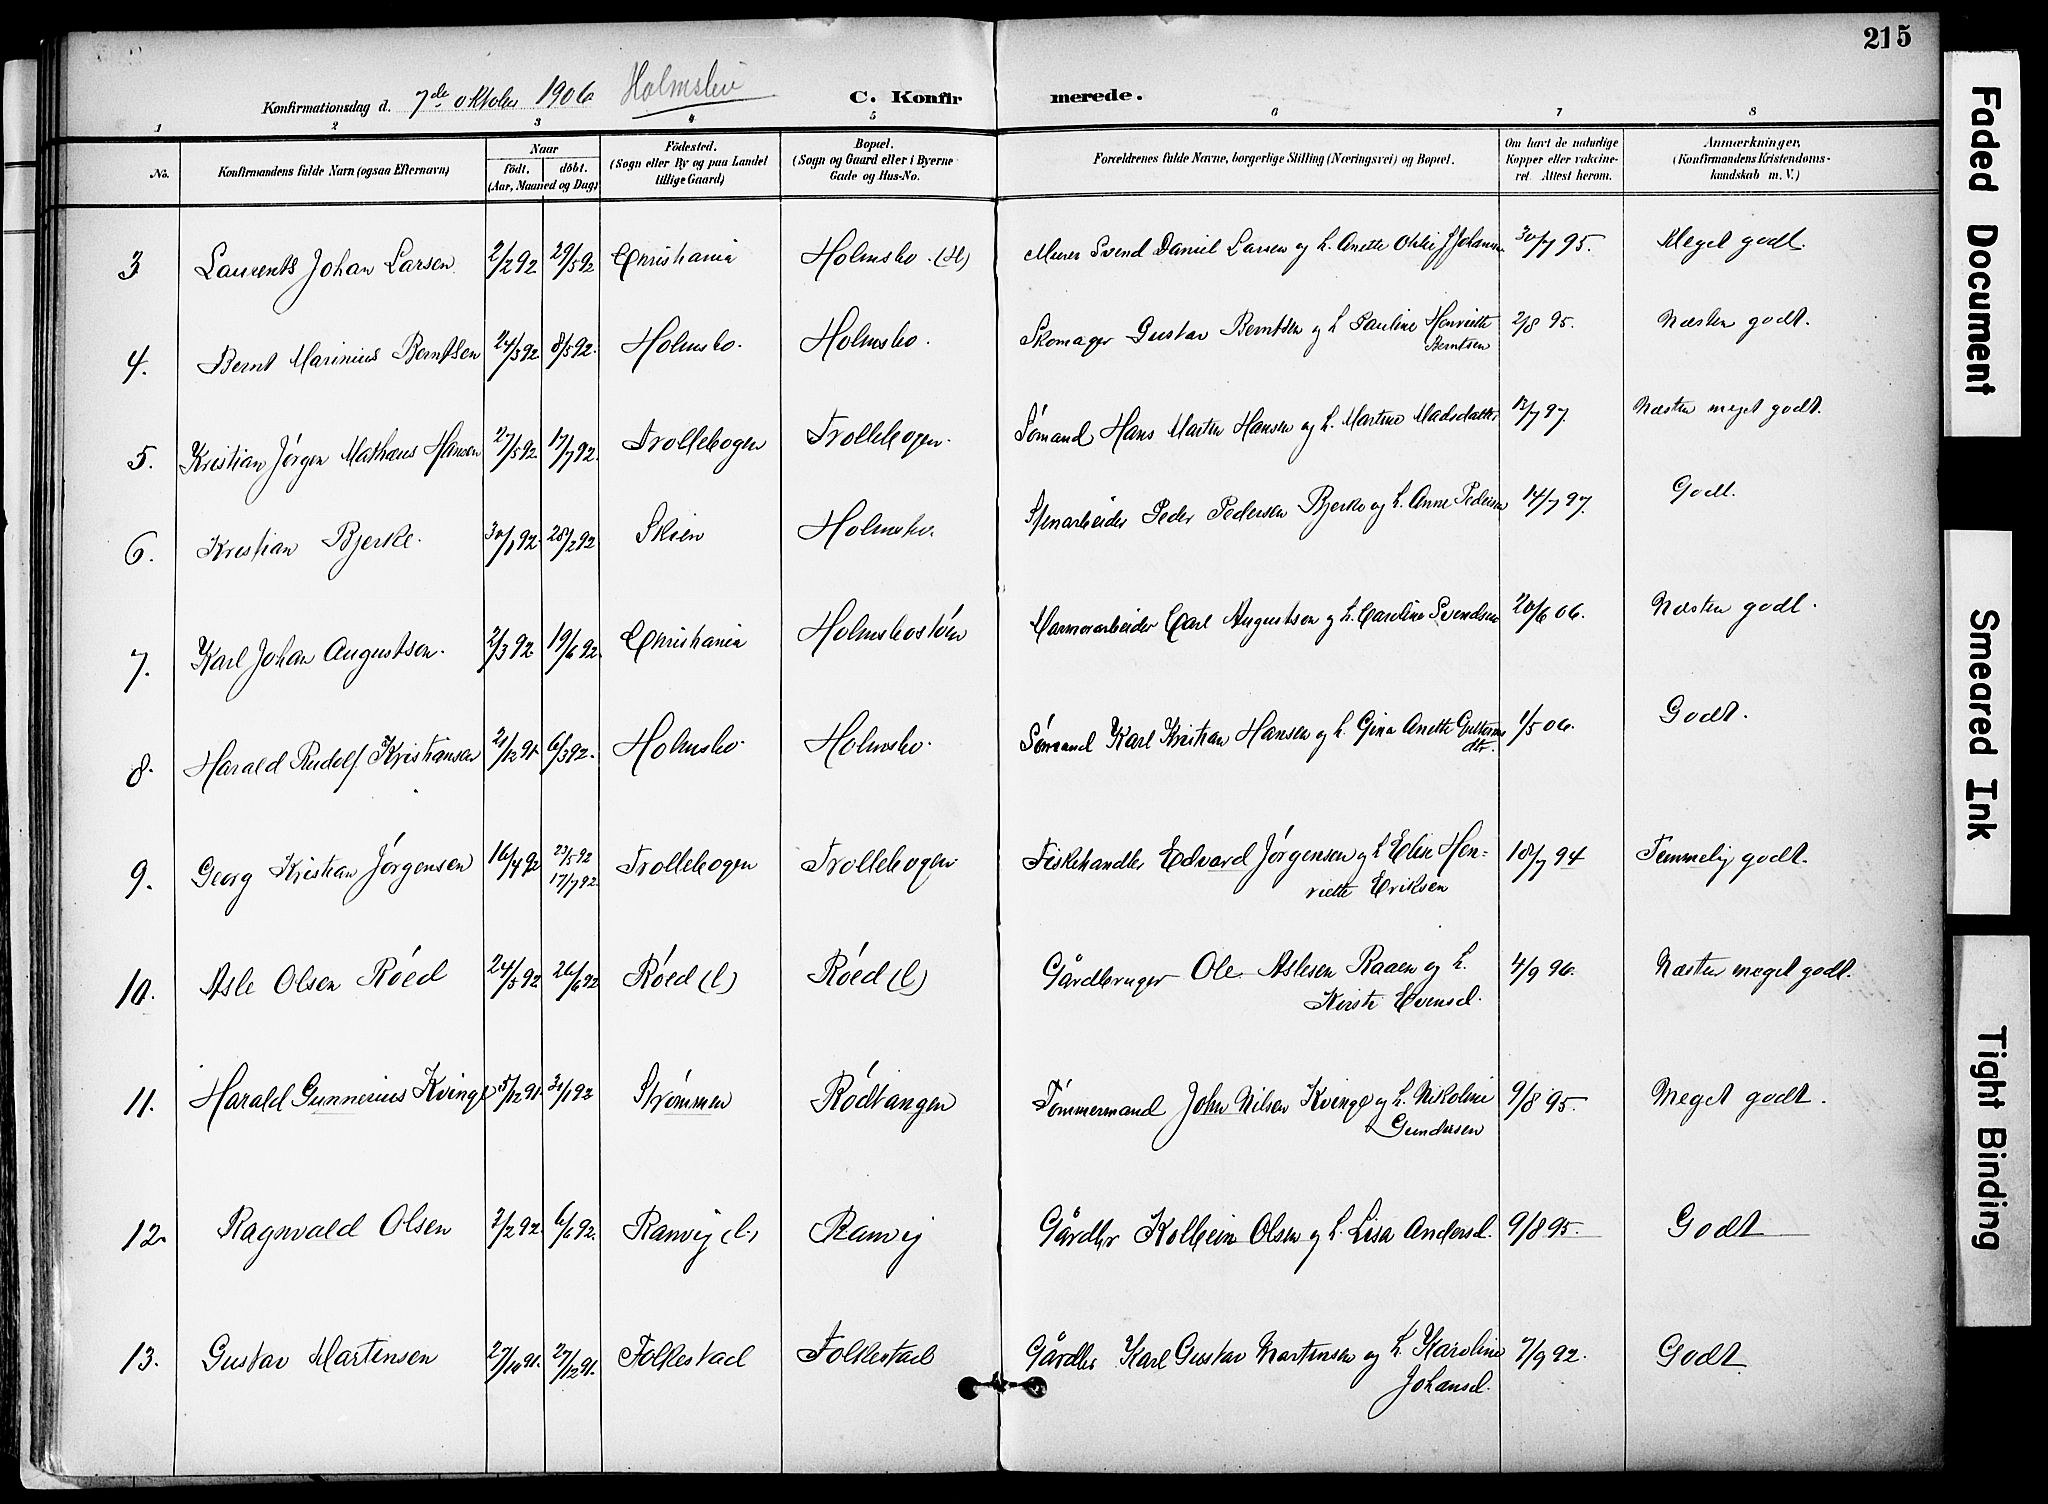 215
Konfirmationsdag d. 7de oktober 1906 Holmsbu C. Konfirmerede.
1 2 3 4 5 6 7 8
No. Konfirmandens fulde Navn (ogsaa Efternavn) Naar født. døbt. (Aar, Maaned og Dag) Fødested. (Sogn eller By og paa Landet tillige Gaard) Bopæl. (Sogn og Gaard eller i Byerne Gade og Hus-No. Forældrenes fulde Navne, borgerlige Stilling (Næringsvei) og Bopæl. Om havt de naturlige Kopper eller vaccineret. Attest herom. Anmærkninger, (Konfirmandens Kristendomskundskab m. V.)
3 Laurents Johan Larsen 2/2 92 29/5 92 Christiania Holmsbo. (H) Murer Svend Daniel Larsen og h. Anette Othilie Johansen 30/7 95. Meget godt
4. Bernt Marinius Berntsen 24/3 92 8/5 92. Holmsbo. Holmsbo. Skomager Gustav Berntsen og h. Pauline Henriette Berntsen 2/8 95. Næsten godt.
5. Kristian Jørgen Mathæus Hansen 27/5 92 17/7 92. Trollebogen Trollebogen. Sømand Hans Martin Hansen og h. Martine Madsdatter 12/7 97. Næsten meget godt.
6. Kristian Bjerke. 30/1 92. 28/2 92 Skien Holmsbo. Stenarbeider Peder Pedersen Bjerke og h. Anne Pedersen 14/7 97. Godt.
7. Karl Johan Augustsen. 2/3 92 19/6 92. Christiania Holmsbostøen Marmorarbeider Carl Augustson og h. Caroline Svendsen 20/6 06. Næsten godt.
8. Harald Rudolf Kristiansen 21/12 91. 6/3 92. Holmsbo. Holmsbo. Sømand Karl Kristian Hansen og h. Gina Anette Guttormsdtr. 1/5 06. Godt.
9. Georg Kristian Jørgensen 16/4 92 23/5 92 17/7 92. Trollebogen Trollebogen Fiskehandler Edvard Jørgensen og h. Elise Henriette Eriksen 18/7 94 Temmelig godt.
10. Asle Olsen Røed 24/5 92 26/6 92 Røed (l) Røed (l) Gårdbruger Ole Aslesen Raaen og h. Kirsti Evensd. 4/9 96. Næsten meget godt.
11. Harald Gunnerius Kvinge 5/12 91. 31/1 92 Strømmen Rødtangen Tømmermand John Nilsen Kvinge og h. Nikoline Gundersen 9/8 95. Meget godt.
12. Ragnvald Olsen 2/2 92. 6/6 92. Ramvig (l.) Ramvig Gårdbr Kolbein Olsen og h. Lisa Andersd. 9/8 95. Godt
13. Gustav Martinsen 27/10 91. 27/12 91. Folkestad Folkestad Gårdbr Karl Gustav Martinsen og h. Karoline Johansd. 7/9 92. Godt
Faded Document
Smeared Ink
Tight Binding